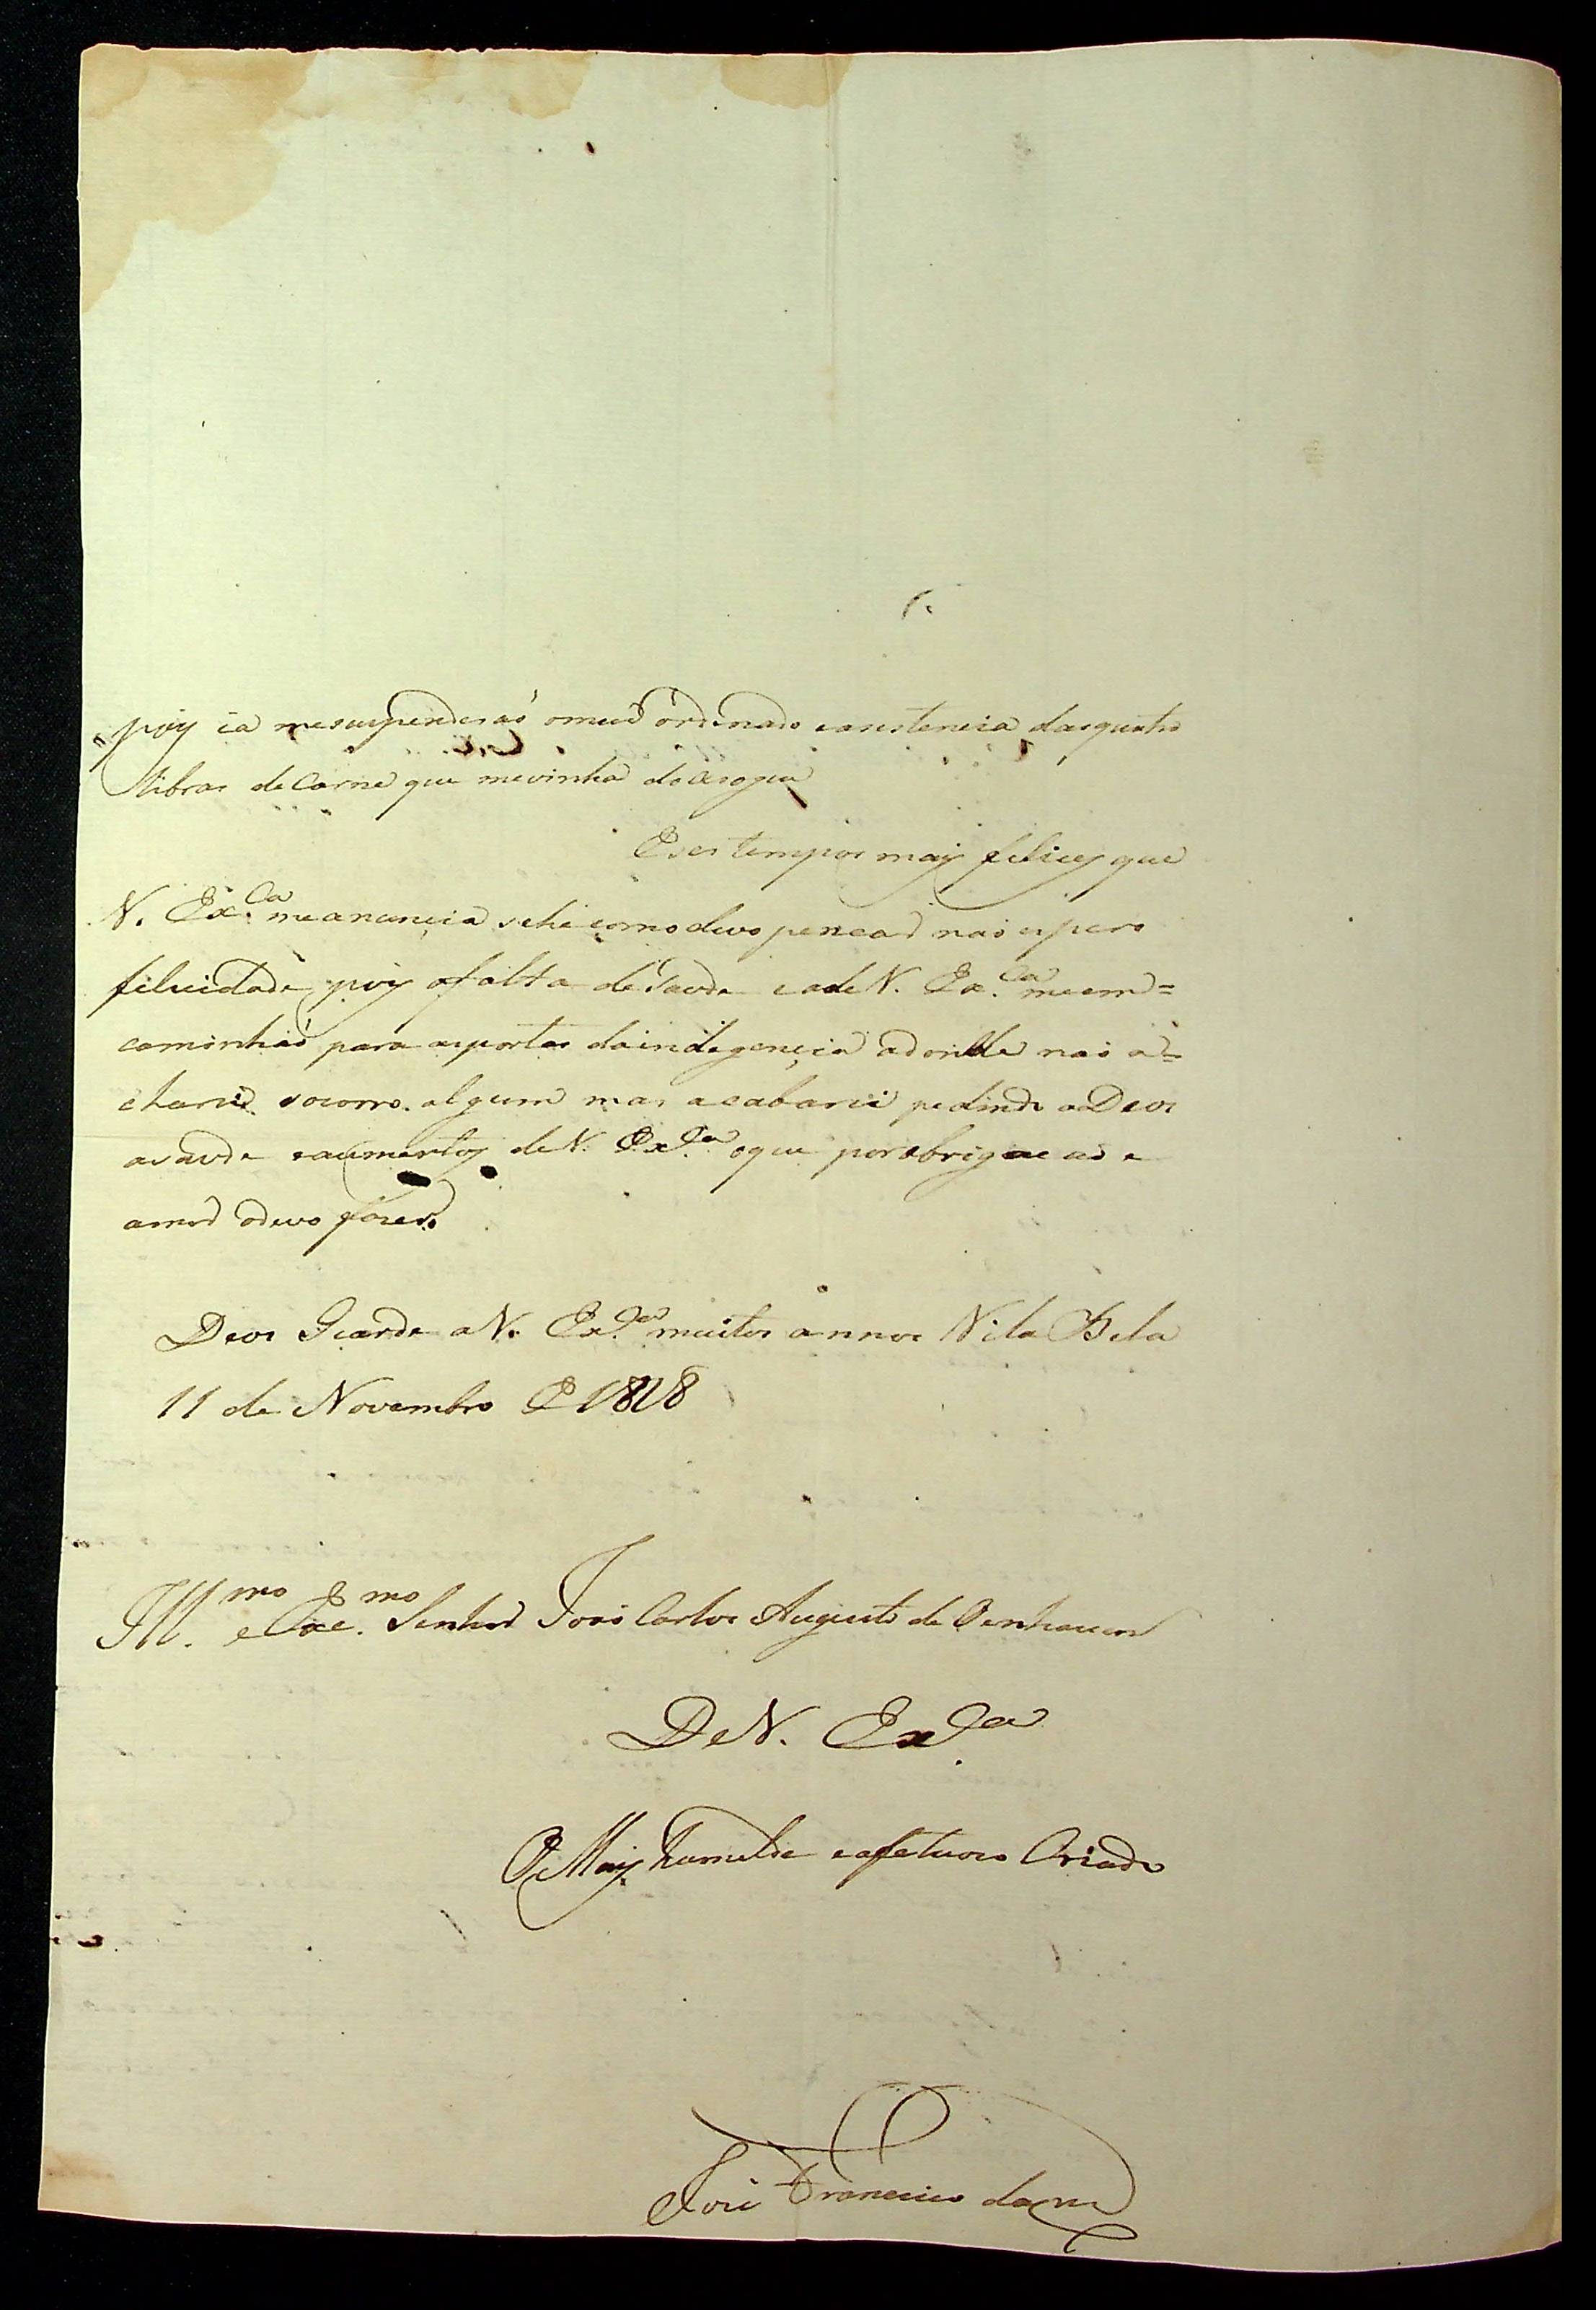 poiz ia mesuspenderaõ omeu ôrdinado easistencia dasquatro
libras deCarne que mevinha doasogue
Eses tempos maiz felicez que
V. Ex.ca meanuncia sehe comodevo pensar naõ espero
felicidade poiz afalta deSaude eadeV. Ex.ca meem=
caminhaõ para asportas daindigençia adonde naõ a=
charei socorro algum mas acabarei pedindo aDeos
asaude eaumentoz deV. Ex.ca oque porobrigacaõ e
amor odevo fazer.
Deos Guarde aV. Ex.ca muitos annos Vila Bela
11 de Novembro D 1818
Ill.mo e Exc.mo Senhor Joaõ Carlos Augusto de Oenhausen
DeV. Ex.ca
O Maiz humilde eafetuozo Criado
José Francisco